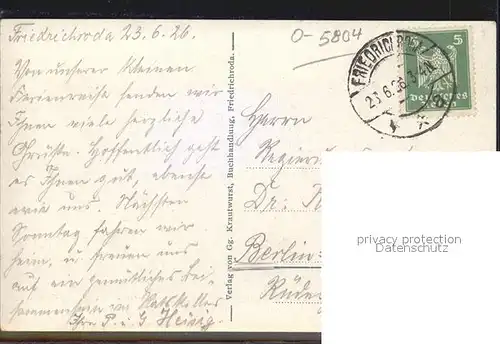 Friedrichroda 23.6.26.
Von unserer kleinen
Ferienreise senden wir
Ihnen viele herzliche
Grüße. Hoffentlich geht
es Ihnen gut, ebenso
wie uns. Nächsten
Sonntag fahren wir
heim, u. freuen uns
auf ein gemütliches Bei-
sammensein im Ratskeller
Ihre P. u. G. Heinig.
Verlag von Gg. Krautwurst, Buchhandlung, Friedrichroda.
O-5804
FRIEDRICHRODA
23.6.26
5
Deutsches
Herrn
Dr.
Berlin-
privacy protection
Datenschutz